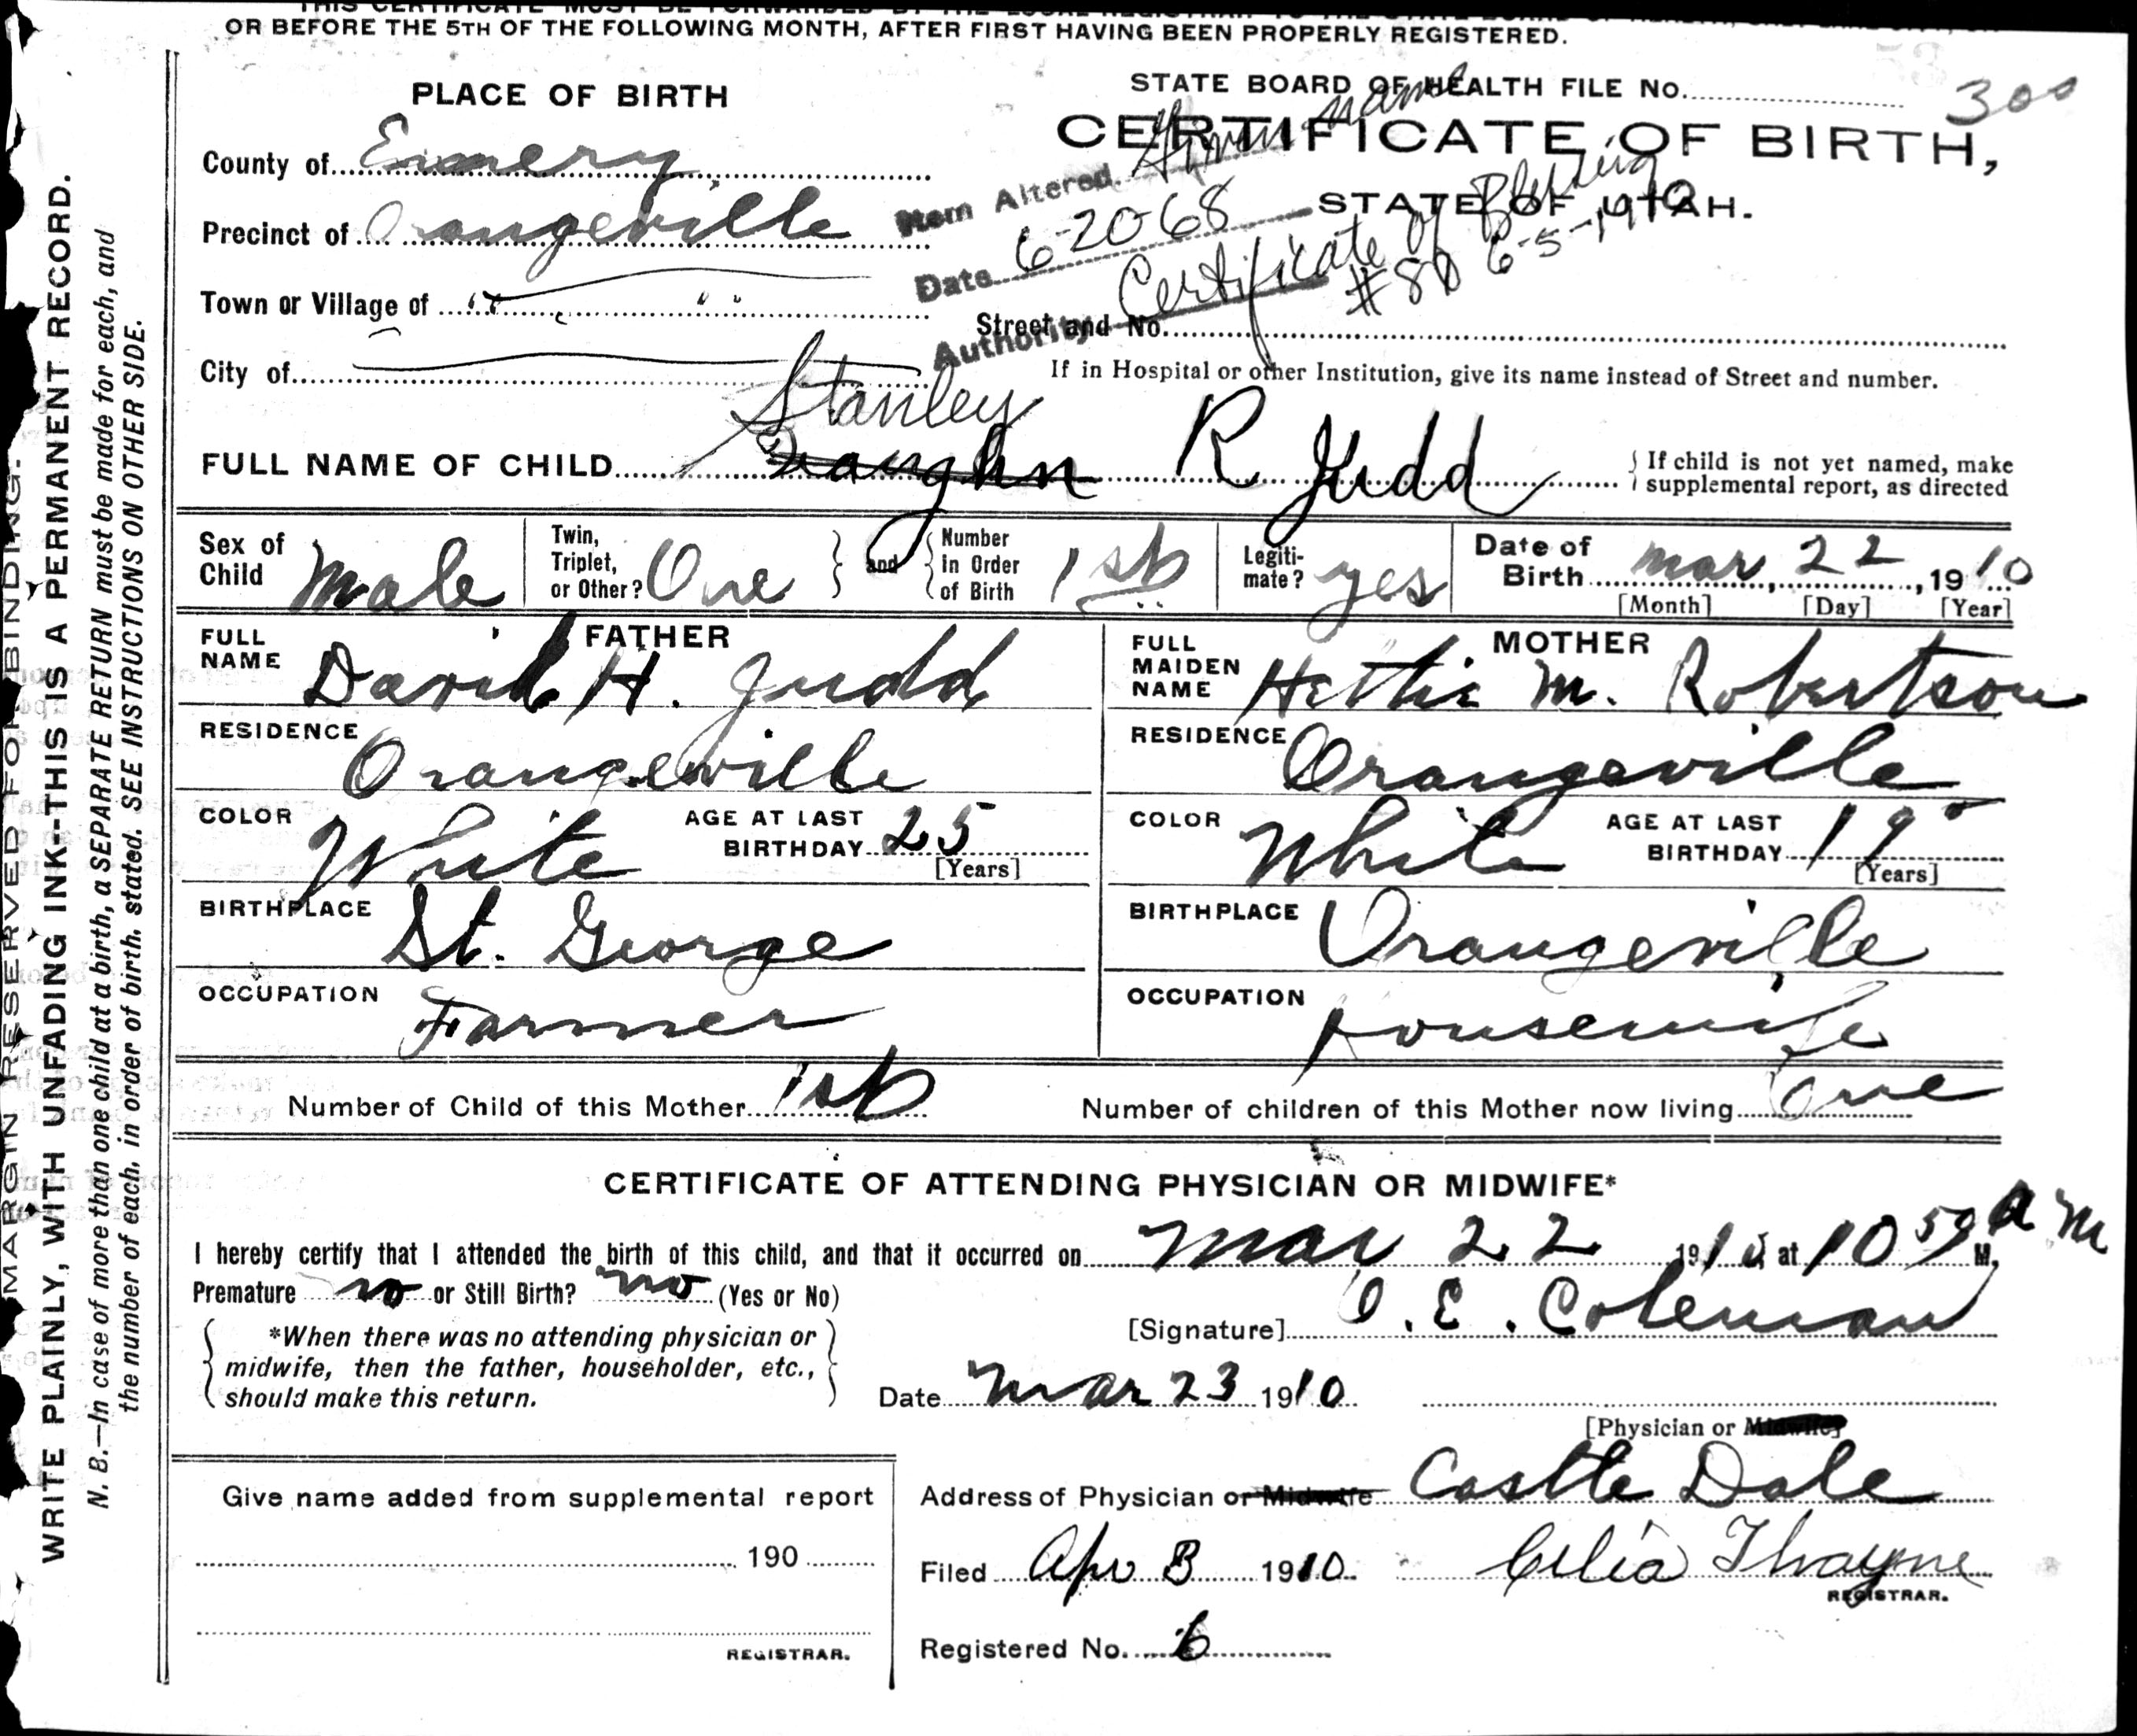 THIS CERTIFICATE MUST BE FORWARDED BY THE LOCAL REGISTRAR TO THE STATE BOARD OF HEALTH,
OR BEFORE THE 5TH OF THE FOLLOWING MONTH, AFTER FIRST HAVING BEEN PROPERLY REGISTERED.
MARGIN RESERVED FOR BINDING.
WRITE PLAINLY, WITH UNFADING INK--THIS IS A PERMANENT RECORD.
N. B.—In case of more than one child at a birth, a SEPARATE RETURN must be made for each, and
the number of each, in order of birth, stated. SEE INSTRUCTIONS ON OTHER SIDE.
PLACE OF BIRTH
County of Emery
Precinct of Orangeville
Town or Village of " "
City of
STATE BOARD OF HEALTH FILE No. 300
CERTIFICATE OF BIRTH,
STATE OF UTAH.
Item Altered Given name
Date 6-20-68
Authority Certificate of Blessing
#80 6-5-1910
Street and No.
If in Hospital or other Institution, give its name instead of Street and number.
Stanley
FULL NAME OF CHILD Vaughn R Judd
If child is not yet named, make
supplemental report, as directed
Sex of Child Male
Twin, Triplet, or Other? One and Number in Order of Birth 1st
Legitimate? yes
Date of Birth mar 22, 1910
[Month] [Day] [Year]
FATHER
FULL NAME David H. Judd
RESIDENCE Orangeville
COLOR White AGE AT LAST BIRTHDAY 25
[Years]
BIRTHPLACE St. George
OCCUPATION Farmer
MOTHER
FULL MAIDEN NAME Hettie M. Robertson
RESIDENCE Orangeville
COLOR White AGE AT LAST BIRTHDAY 19
[Years]
BIRTHPLACE Orangeville
OCCUPATION housewife
Number of Child of this Mother 1st Number of children of this Mother now living One
CERTIFICATE OF ATTENDING PHYSICIAN OR MIDWIFE*
I hereby certify that I attended the birth of this child, and that it occurred on Mar 22 1910, at 10 59 a m M.
Premature no or Still Birth? no (Yes or No)
*When there was no attending physician or
midwife, then the father, householder, etc.,
should make this return.
[Signature] O. E. Coleman
Date Mar 23 1910
[Physician or Midwife]
Address of Physician or Midwife Castle Dale
Filed Apr 3 1910 Celia Thayne
REGISTRAR.
Registered No. 6
Give name added from supplemental report
190
REGISTRAR.